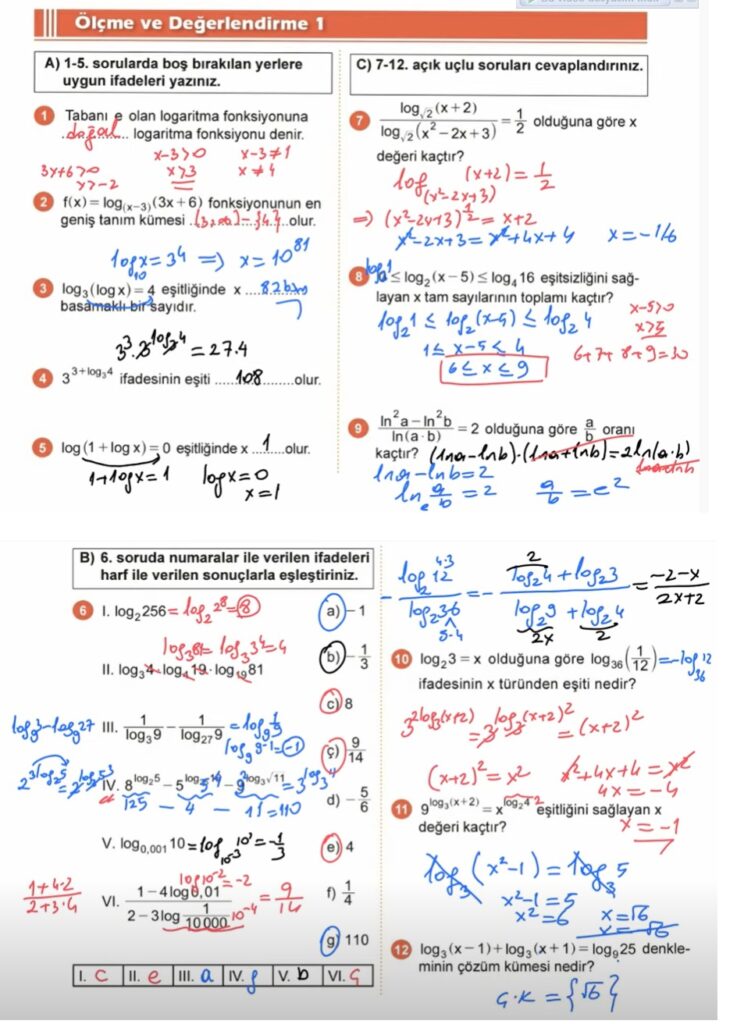 Ölçme ve Değerlendirme 1
A) 1-5. sorularda boş bırakılan yerlere
uygun ifadeleri yazınız.
1 Tabanı e olan logaritma fonksiyonuna
.doğal... logaritma fonksiyonu denir.
x-3>0 x-3≠1
3x+6>0 x>3 x≠4
x>-2
2 f(x) = log(x−3)(3x + 6) fonksiyonunun en
geniş tanım kümesi .(3,∞)-{4}..olur.
log₁₀x=3⁴ ⇒ x=10⁸¹
3 log₃(log x) = 4 eşitliğinde x ....82 bas
basamaklı bir sayıdır.
3³·3^log₃4 = 27.4
4 3^(3+log₃4) ifadesinin eşiti .....108........olur.
5 log(1 + log x) = 0 eşitliğinde x ...1....olur.
1+logx=1 logx=0
x=1
C) 7-12. açık uçlu soruları cevaplandırınız.
7 log√2(x + 2) / log√2(x² − 2x + 3) = 1/2 olduğuna göre x
değeri kaçtır?
log(x²-2x+3) (x+2) = 1/2
⇒ (x²-2x+3)^(1/2) = x+2
x²-2x+3 = x²+4x+4 x=-1/6
log₂1
8 0 ≤ log₂(x − 5) ≤ log₄16 eşitsizliğini sağ-
layan x tam sayılarının toplamı kaçtır?
log₂1 ≤ log₂(x-5) ≤ log₂4
x-5>0
x>5
1 ≤ x-5 ≤ 4
6 ≤ x ≤ 9
6+7+8+9=30
9 (ln²a − ln²b) / ln(a · b) = 2 olduğuna göre a/b oranı
kaçtır? (lna-lnb)·(lna+lnb)=2ln(a·b)
lna-lnb=2 lna+lnb
lnₑ a/b = 2 a/b = e²
B) 6. soruda numaralar ile verilen ifadeleri
harf ile verilen sonuçlarla eşleştiriniz.
6 I. log₂256 = log₂2⁸ = 8
log₃81 = log₃3⁴ = 4
II. log₃4 · log₄19 · log₁₉81
log₉3 - log₉27 III. 1/log₃9 − 1/log₂₇9 = log₉ 1/9
log₉9⁻¹ = -1
2^(3log₂5) = 2^(log₂5³) IV. 8^(log₂5) − 5^(log₅4) − 9^(log₃√11) = 3^log₃4
125 - 4 - 11 = 110
V. log₀,₀₀₁ 10 = log₁₀⁻³ 10¹ = -1/3
log10⁻² = -2
(1+4·2)/(2+3·4) VI. (1 − 4log 0,01) / (2 − 3log 1/10 000) = 9/14
10⁻⁴
a) −1
b) −1/3
c) 8
ç) 9/14
d) −5/6
e) 4
f) 1/4
g) 110
I. c II. e III. a IV. g V. b VI. ç
-log₂12 / log₂36 = - (log₂4 + log₂3) / (log₂9 + log₂4) = (-2-x)/(2x+2)
4·3 2
9·4 2x 2
10 log₂3 = x olduğuna göre log₃₆(1/12) = -log₃₆12
ifadesinin x türünden eşiti nedir?
3^(2log₃(x+2)) = 3^(log₃(x+2)²) = (x+2)²
(x+2)² = x² x²+4x+4 = x²
4x = -4
11 9^(log₃(x+2)) = x^(log₂4) 2 eşitliğini sağlayan x
değeri kaçtır?
x = -1
log₃(x²-1) = log₃5
x²-1 = 5
x² = 6 x=√6
x=-√6
12 log₃(x − 1) + log₃(x + 1) = log₉25 denkle-
minin çözüm kümesi nedir?
Ç.K = {√6}